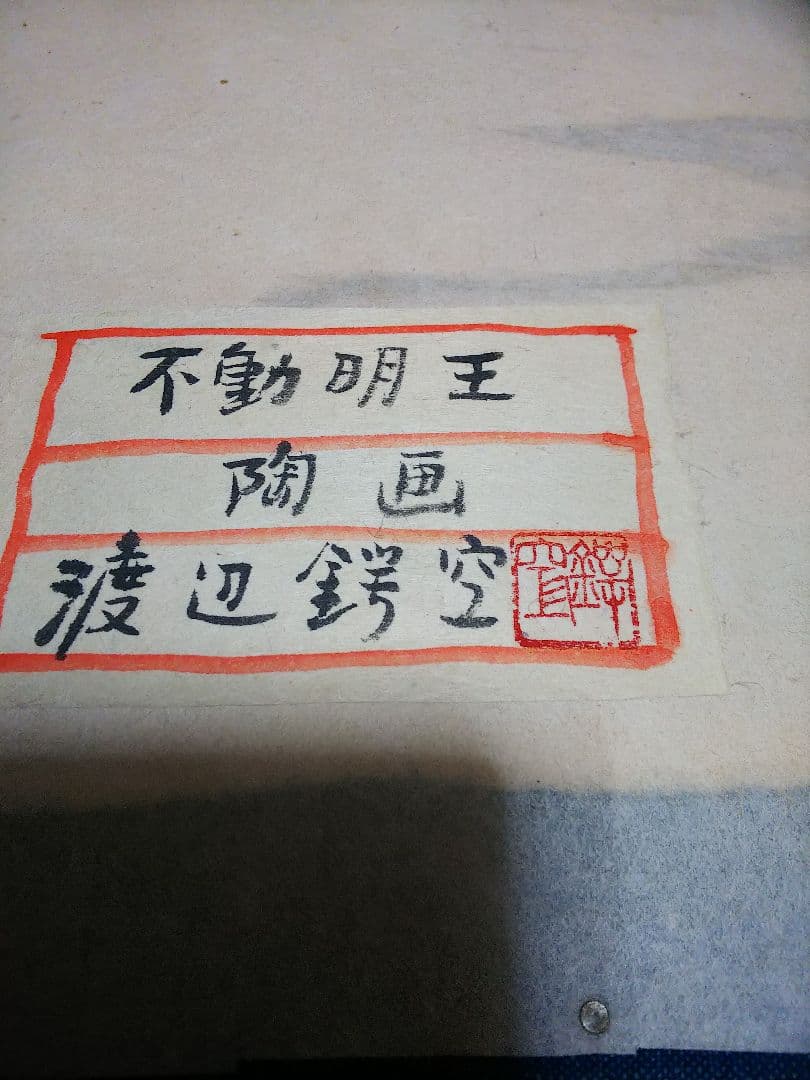 不動明王
陶画
渡辺鍔空